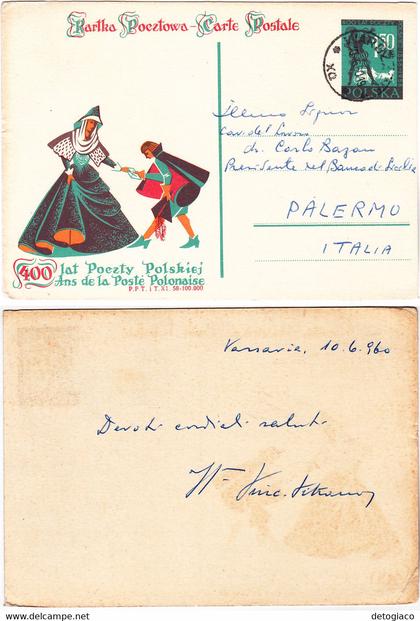 Kartka Pocztowa - Carte Postale
400 LAT POCZTY
50
POLSKA
Illmo Signor
Cav. del Lavoro
dr. Carlo Bazan
Presidente del Banco di Sicilia
PALERMO
ITALIA
400 lat Poczty Polskiej
Ans de la Poste Polonaise
P.P.T. i T. XI. 58-100.000
Varsavia, 10.6.960
Devoti cordiali saluti
WWW.DELCAMPE.NET
detogiaco